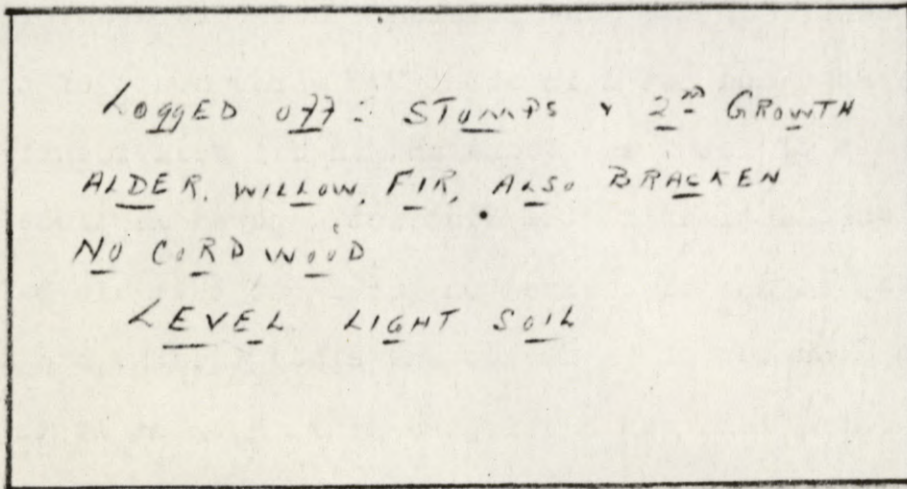 LoggED off: STumPS & 2nd GRowTH
ALDER, WILLOW, FIR, ALSO BRACKEN
NO CORDWOOD
LEVEL LIGHT SOIL